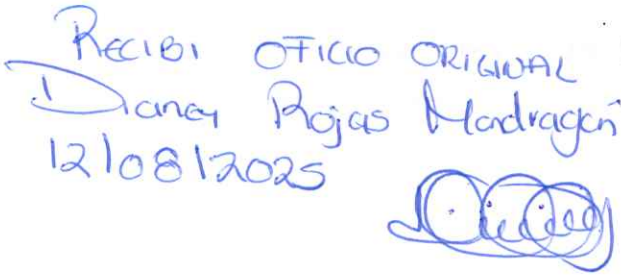 RECIBI OFICIO ORIGINAL
Dianey Rojas Mondragón
12/08/2025